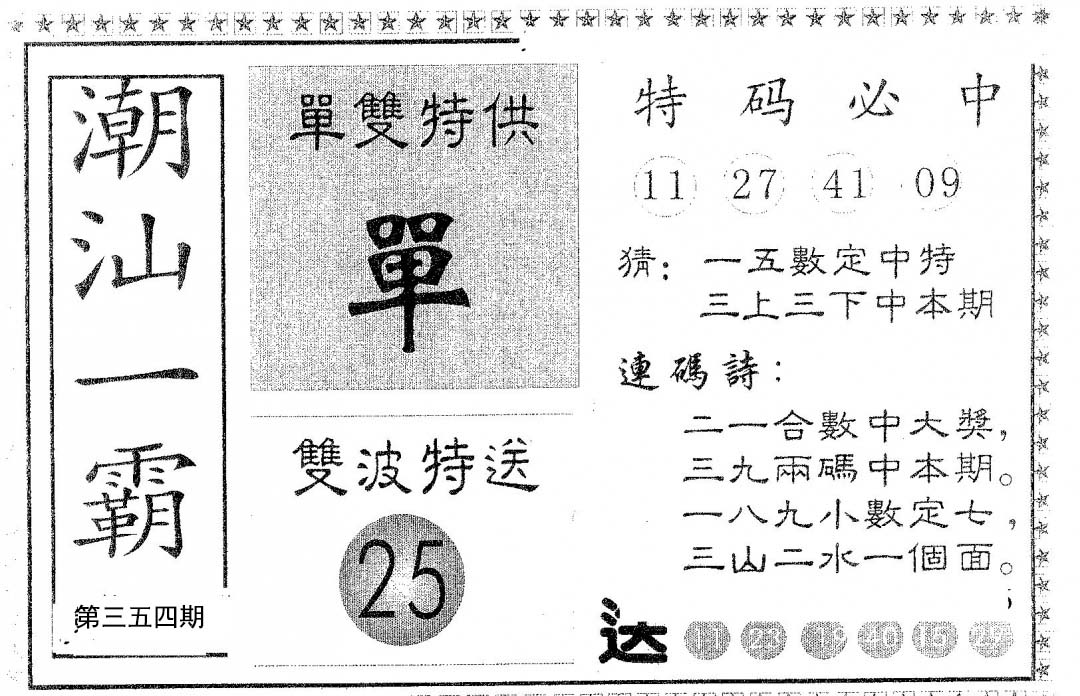 潮汕一霸
第三五四期
單雙特供
單
雙波特送
25
特码必中
11 27 41 09
猜：一五數定中特
三上三下中本期
連碼詩：
二一合數中大獎，
三九兩碼中本期。
一八九小數定七，
三山二水一個面。
送 11 23 19 40 15